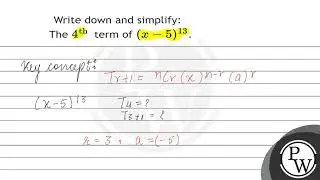 Write down and simplify:
The 4th term of (x − 5)^13.
Key concept:
T_{r+1} = ^nC_r (x)^{n-r} (a)^r
(x-5)^13 T_4 = ?
T_{3+1} = ?
r = 3, a = (-5)
PW